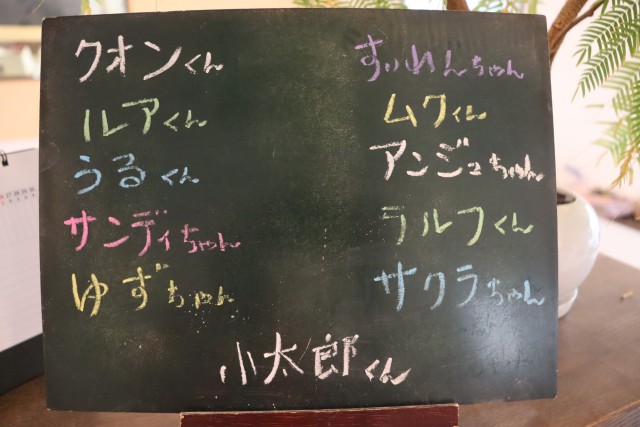 クオンくん
ルアくん
うるくん
サンディちゃん
ゆずちゃん
すいれんちゃん
ムクくん
アンジュちゃん
ラルフくん
サクラちゃん
小太郎くん